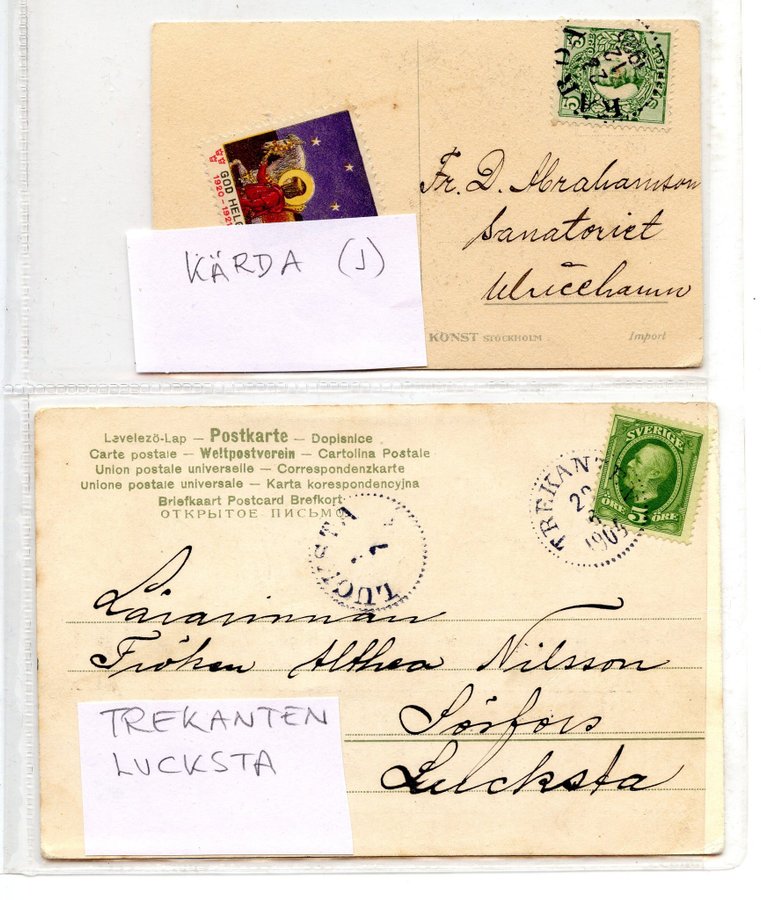 5 5
SVERIGE
KÄRDA
22
12
GOD HELG
1920-1921
Fr. D. Abrahamson
Sanatoriet
Ulricehamn
KÄRDA (J)
KONST STOCKHOLM
Import
Levelezö-Lap — Postkarte — Dopisnice
Carte postale — Weltpostverein — Cartolina Postale
Union postale universelle — Correspondenzkarte
Unione postale universale — Karta korespondencyjna
Briefkaart Postcard Brefkort
ОТКРЫТОЕ ПИСЬМО
SVERIGE
ÖRE 5 ÖRE
TREKANTEN
LUCKSTA
Lärarinnan
Fröken Althea Nilsson
Sörfors
Lucksta
TREKANTEN
LUCKSTA